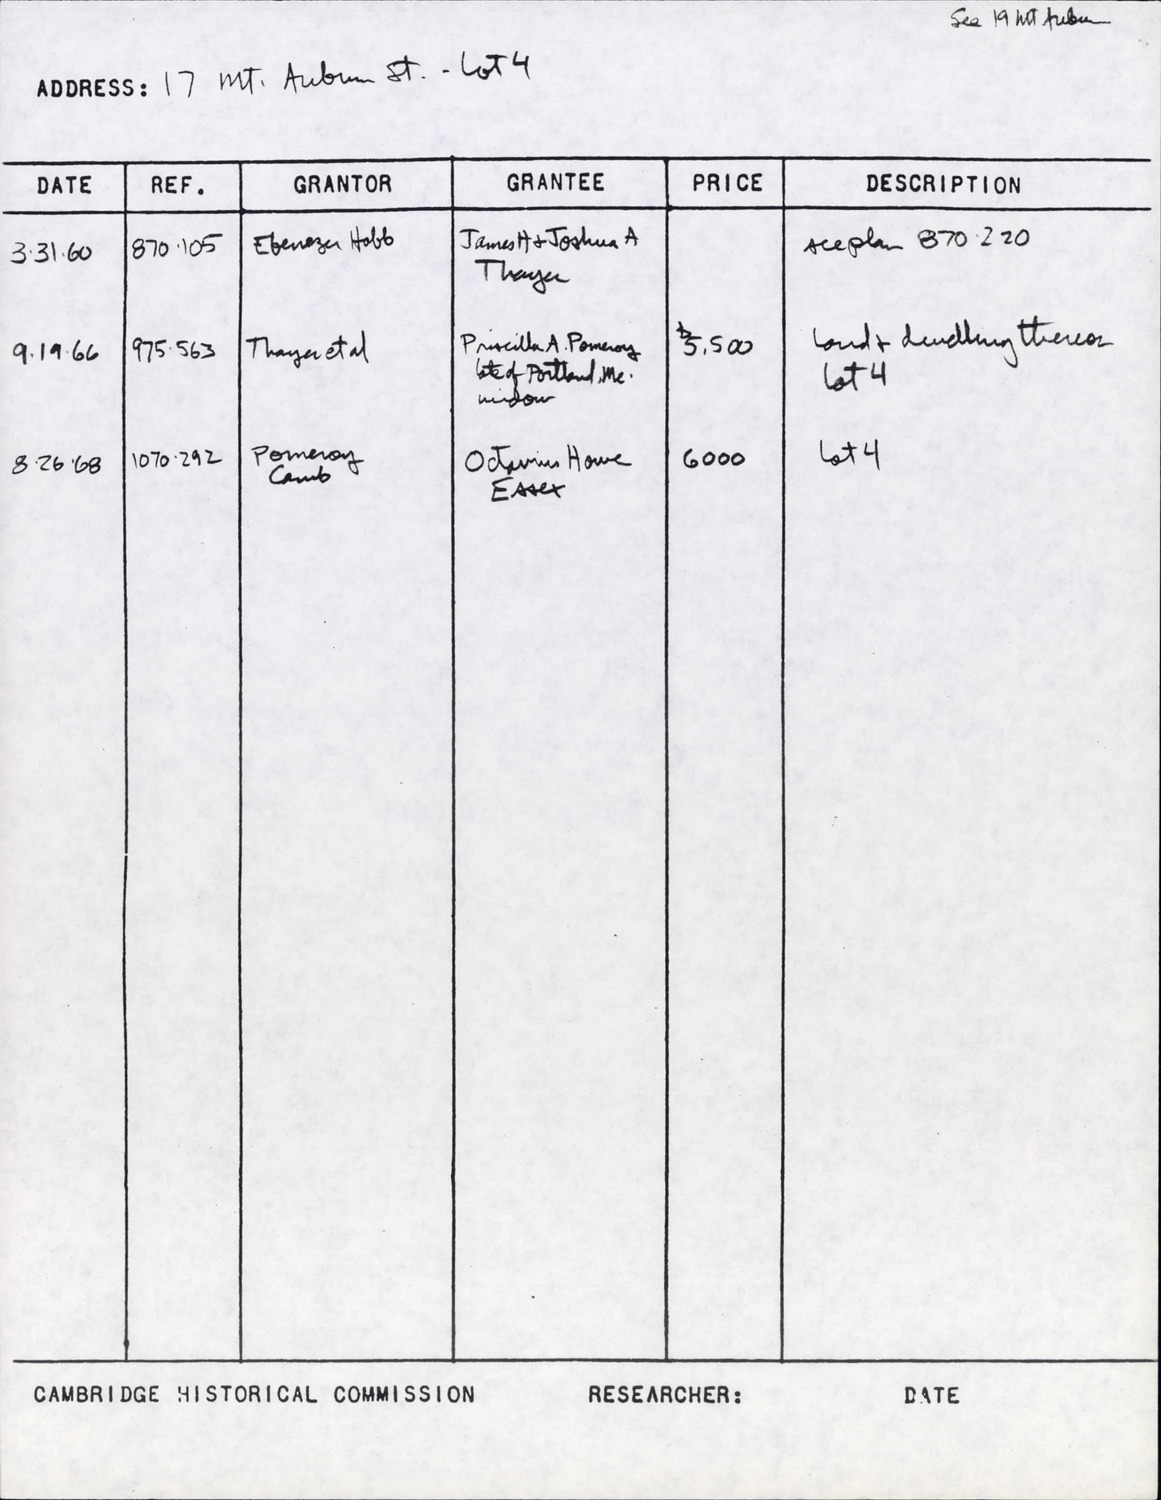 See 19 Mt Auburn
ADDRESS: 17 Mt. Auburn St. - Lot 4
DATE REF. GRANTOR GRANTEE PRICE DESCRIPTION
3·31·60 870·105 Ebenezer Hobb James H + Joshua A see plan 870·220
Thayer
9·19·66 975·563 Thayer et al Priscilla A. Pomeroy $5,500 Land + dwelling thereon
late of Portland, Me. Lot 4
widow
8·26·68 1070·292 Pomeroy Octavius Howe 6000 Lot 4
Camb Essex
CAMBRIDGE HISTORICAL COMMISSION RESEARCHER: DATE